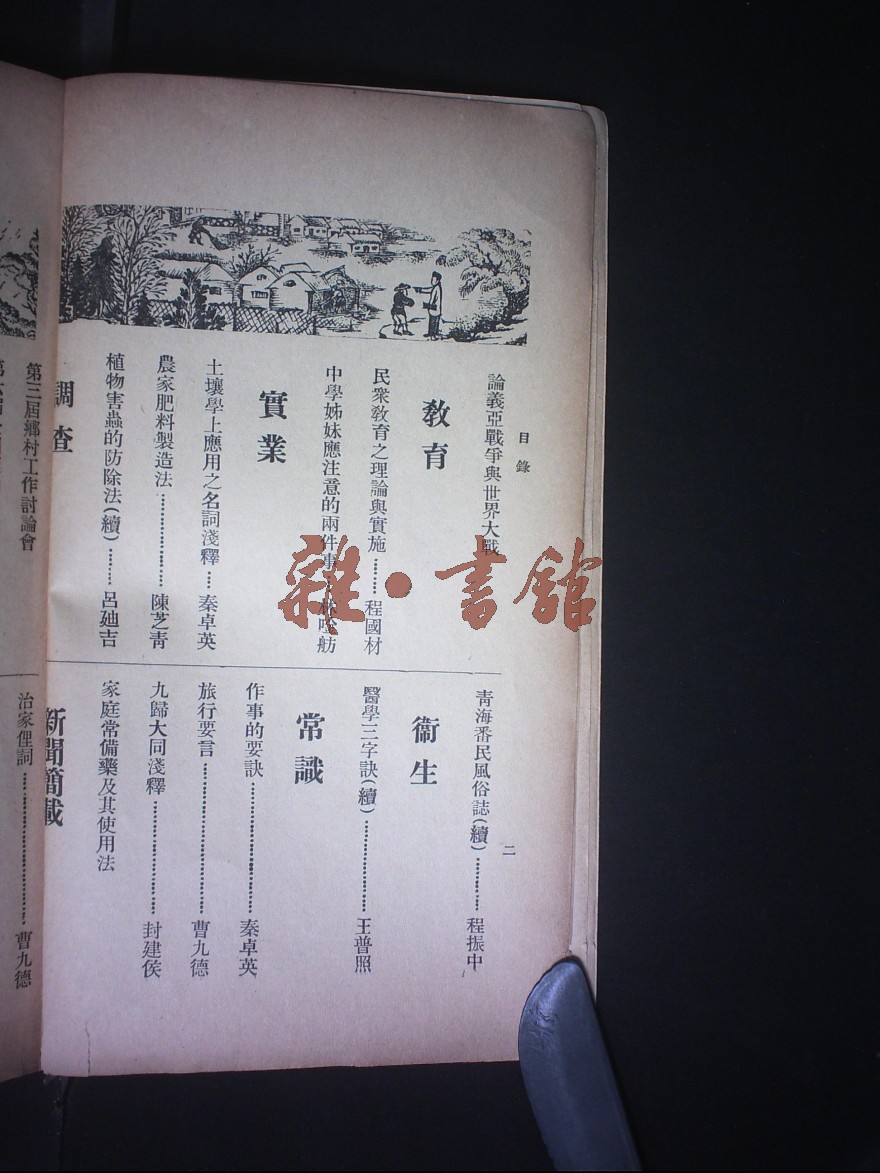 目錄
二
論義亞戰爭與世界大戰
教育
民衆教育之理論與實施………程國材
中學姊妹應注意的兩件事
舫
實業
土壤學上應用之名詞淺釋……秦卓英
農家肥料製造法………………陳芝青
植物害蟲的防除法(續)………呂廸吉
調查
第三屆鄉村工作討論會
青海番民風俗誌(續)…………程振中
衞生
醫學三字訣(續)………………王普照
常識
作事的要訣……………………秦卓英
旅行要言………………………曹九德
九歸大同淺釋…………………封建侯
家庭常備藥及其使用法
新聞簡載
治家俚詞………………………曹九德
雜·書館